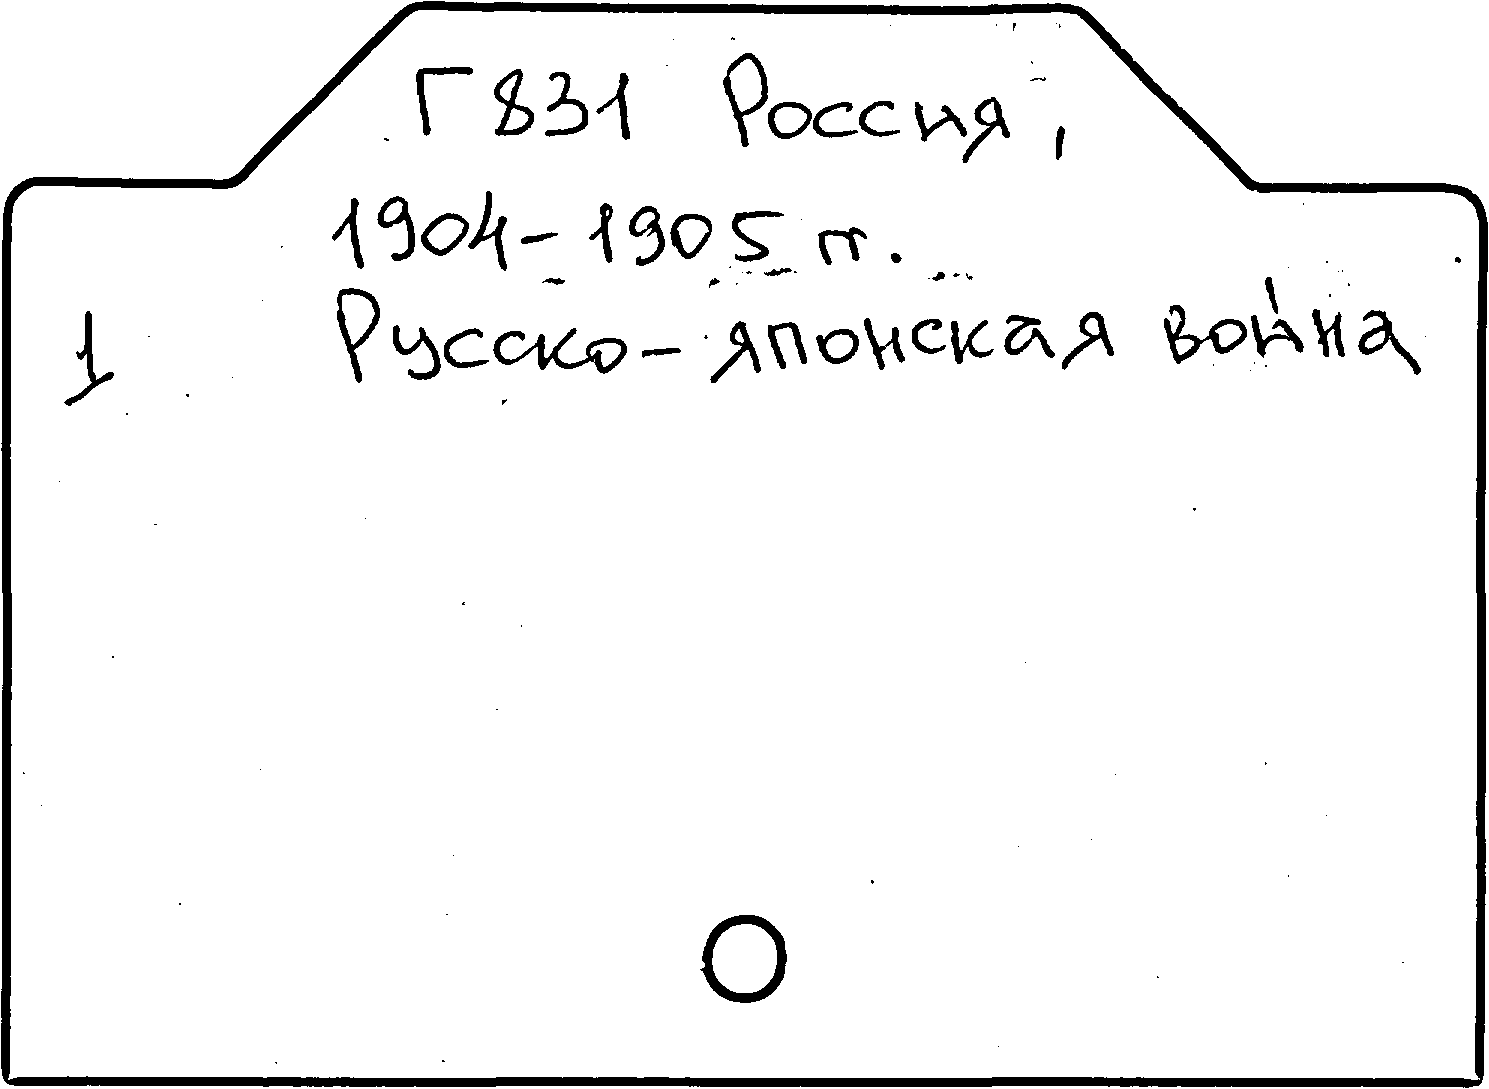 Г 831 Россия,
1904-1905 гг.
1 Русско-японская война